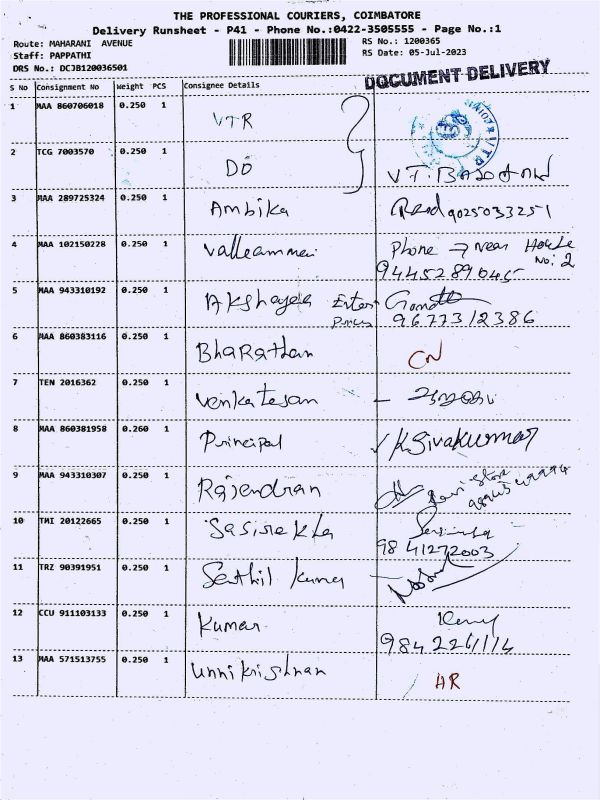 THE PROFESSIONAL COURIERS, COIMBATORE
Delivery Runsheet - P41 - Phone No.:0422-3505555 - Page No.:1
Route: MAHARANI AVENUE
RS No.: 1200365
Staff: PAPPATHI
RS Date: 05-Jul-2023
DRS No.: DCJB120036501
DOCUMENT DELIVERY
S No Consignment No Weight PCS Consignee Details
1 MAA 860706018 0.250 1 VTR
2 TCG 7003570 0.250 1 DO
3 MAA 289725324 0.250 1 Ambika 9025033251
4 MAA 102150228 0.250 1 Valleammai Phone → near House No: 2
9445289045
5 MAA 943310192 0.250 1 Akshayaa
9677312386
6 MAA 860383116 0.250 1 Bharathan CN
7 TEN 2016362 0.250 1 Venkatesan
8 MAA 860381958 0.260 1 Principal K.Sivakumar
9 MAA 943310307 0.250 1 Rajendran
10 TMI 20122665 0.250 1 Sasirekha
9841272003
11 TRZ 90391951 0.250 1 Senthil Kumar
12 CCU 911103133 0.250 1 Kumar
9842261114
13 MAA 571513755 0.250 1 Unnikrishnan HR